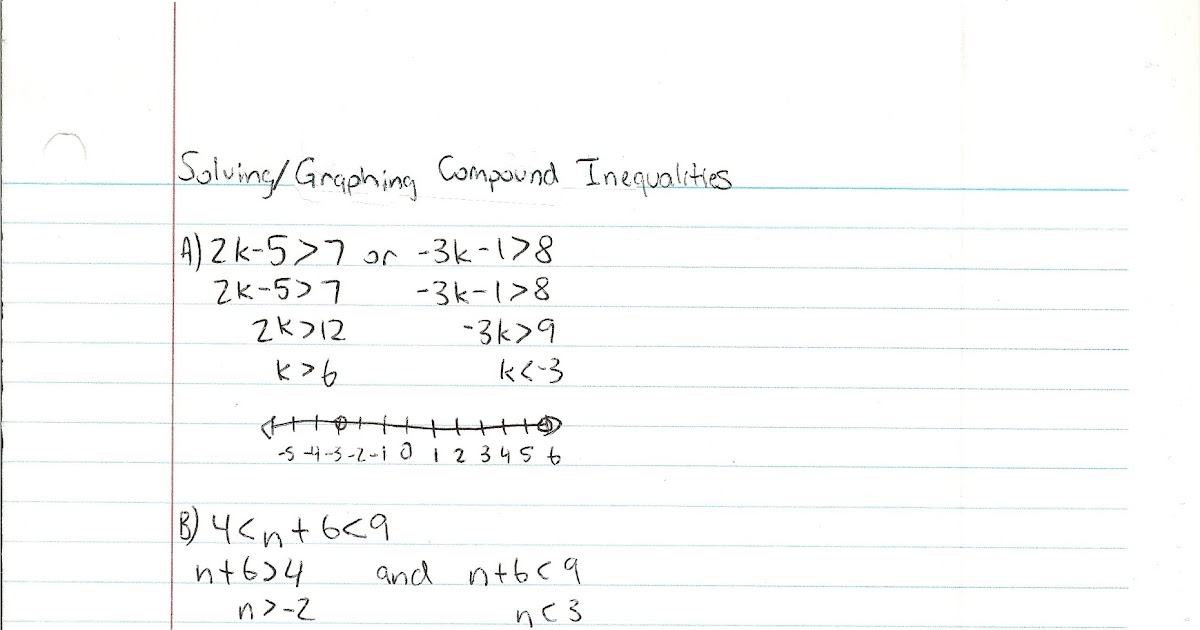 Solving/Graphing Compound Inequalities
A) 2k-5>7 or -3k-1>8
2k-5>7 -3k-1>8
2k>12 -3k>9
k>6 k<-3
-5 -4 -3 -2 -1 0 1 2 3 4 5 6
B) 4<n+6<9
n+6>4 and n+6<9
n>-2 n<3